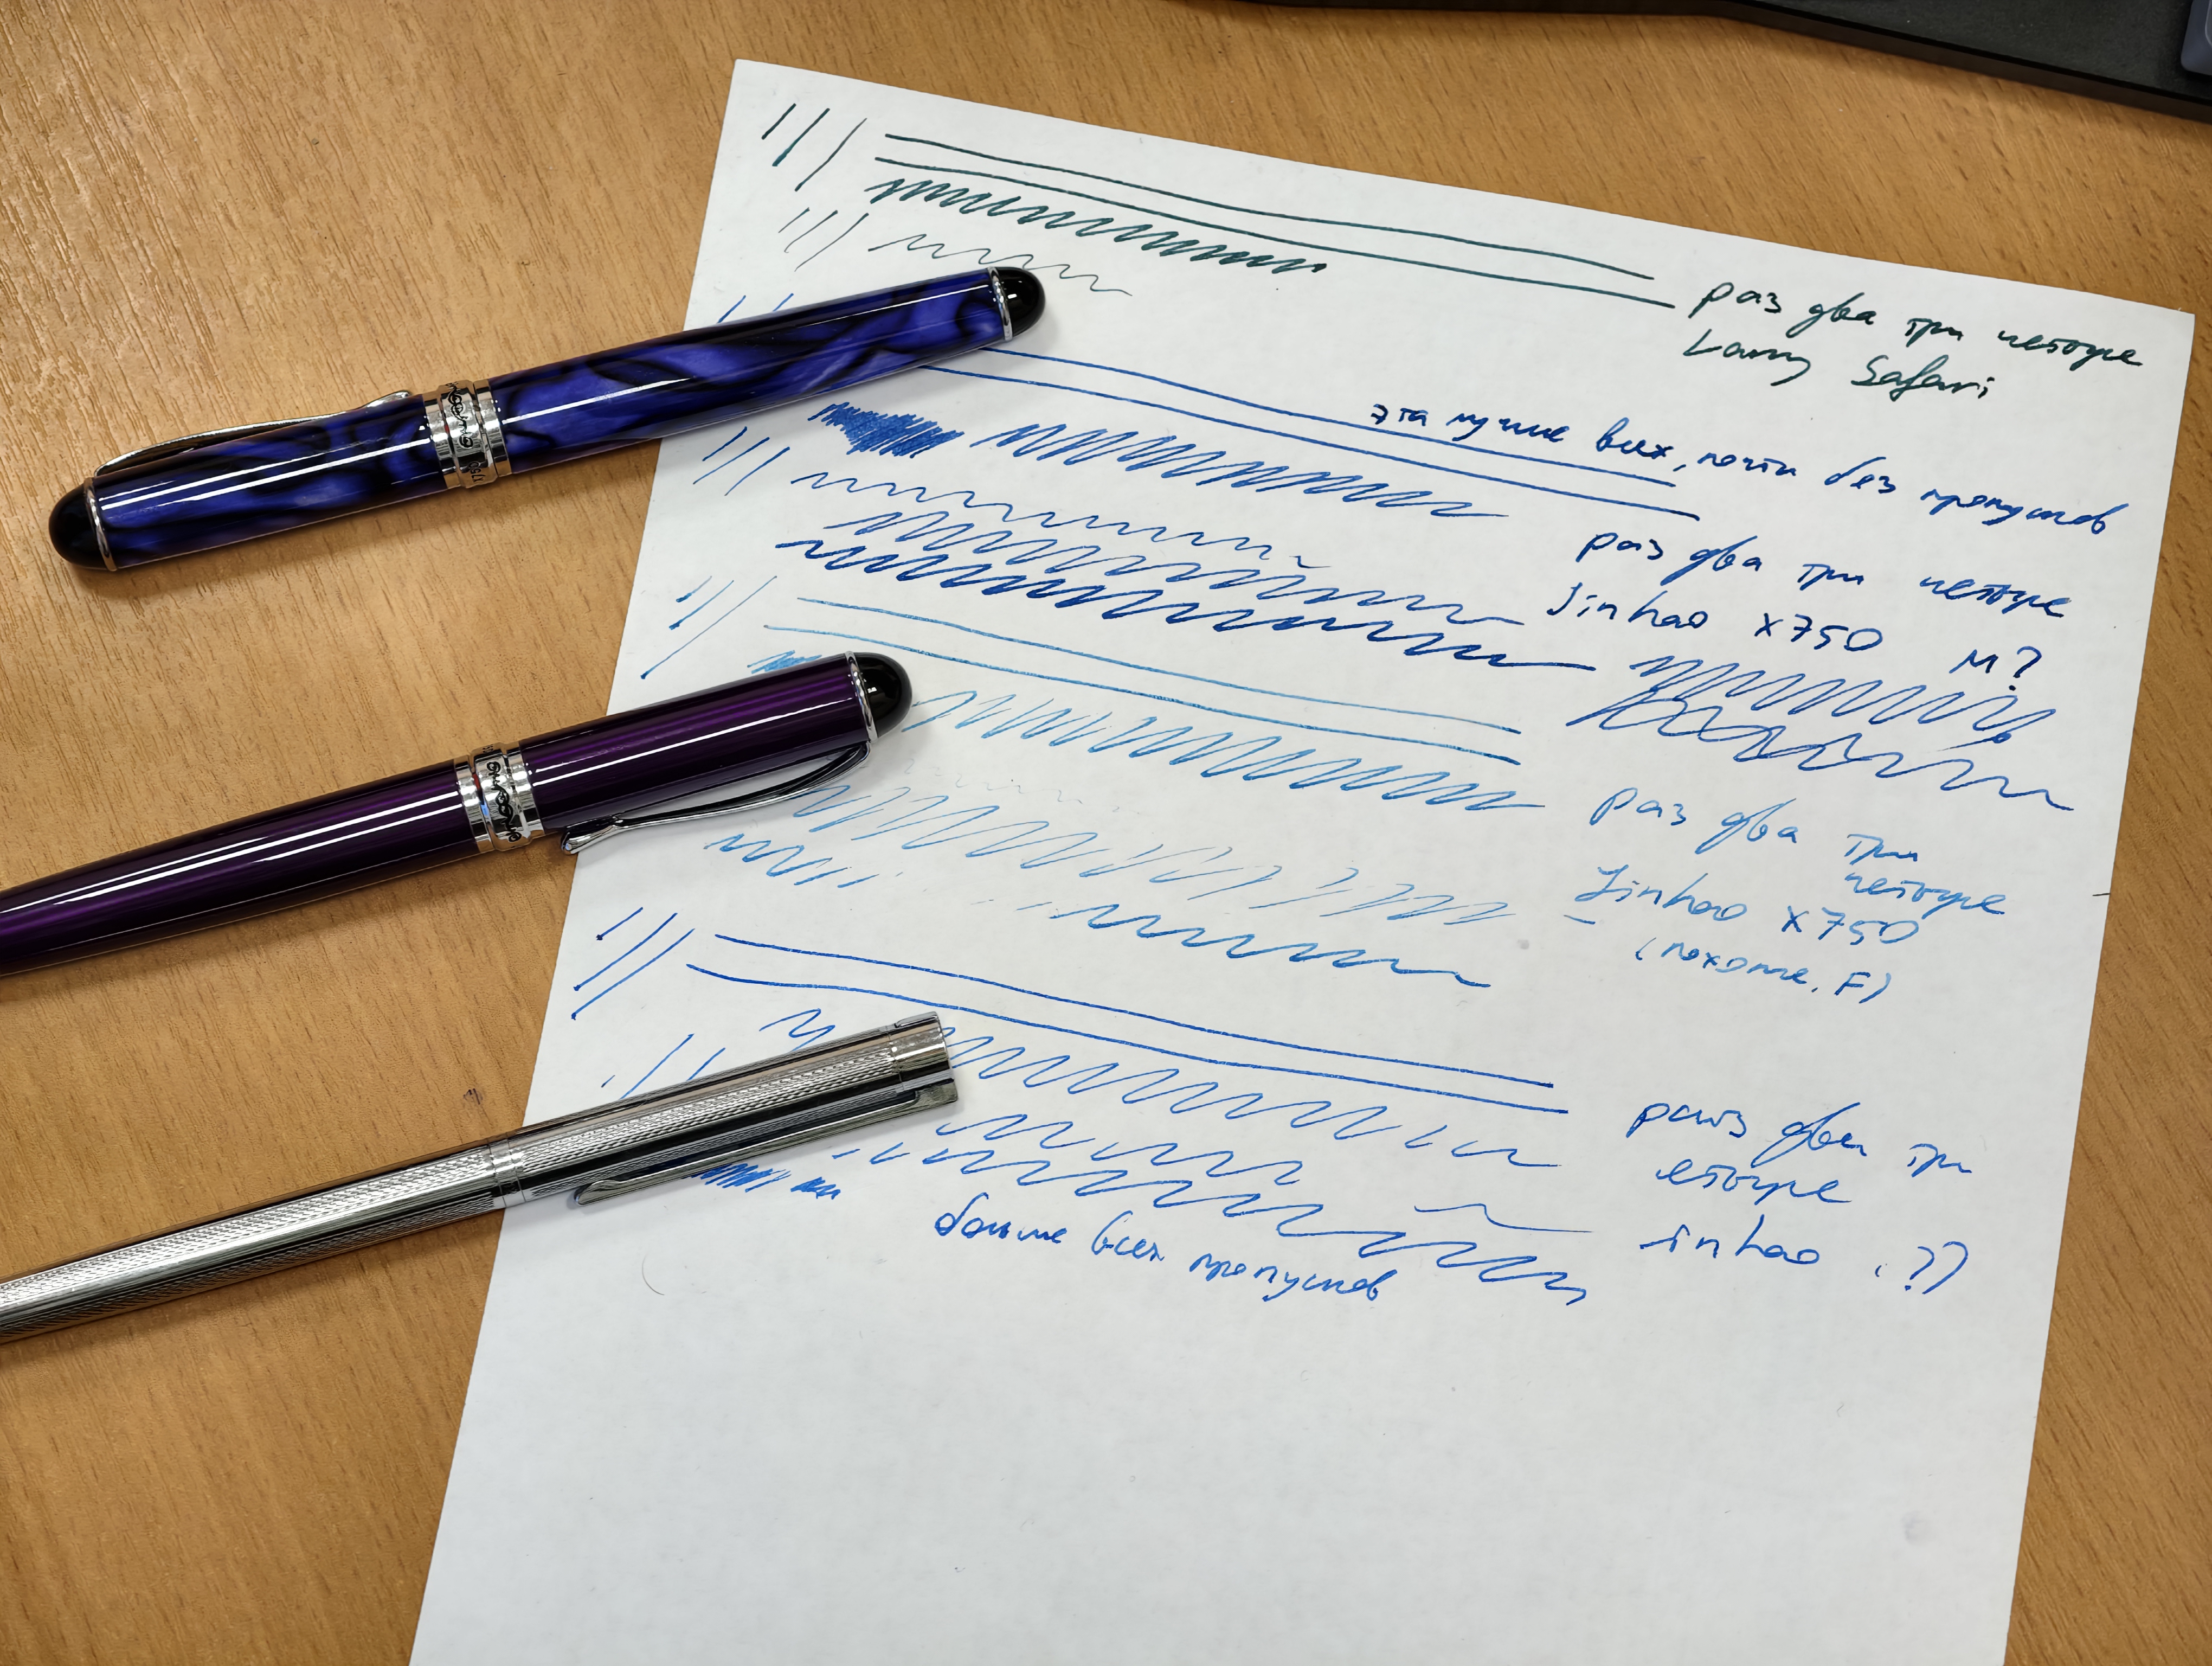 раз два три четыре
Lamy Safari
эта лучше всех, почти без пропусков
раз два три четыре
Jinhao x750 M?
раз два три
четыре
Jinhao x750
(похоже, F)
раз два три
етыре
Jinhao ??
больше всех пропусков